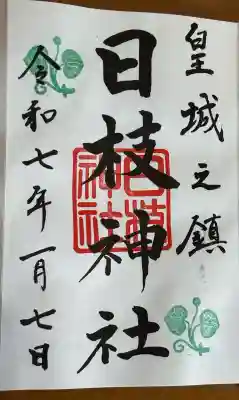 皇城之鎮
日枝神社
令和七年一月七日
日枝神社